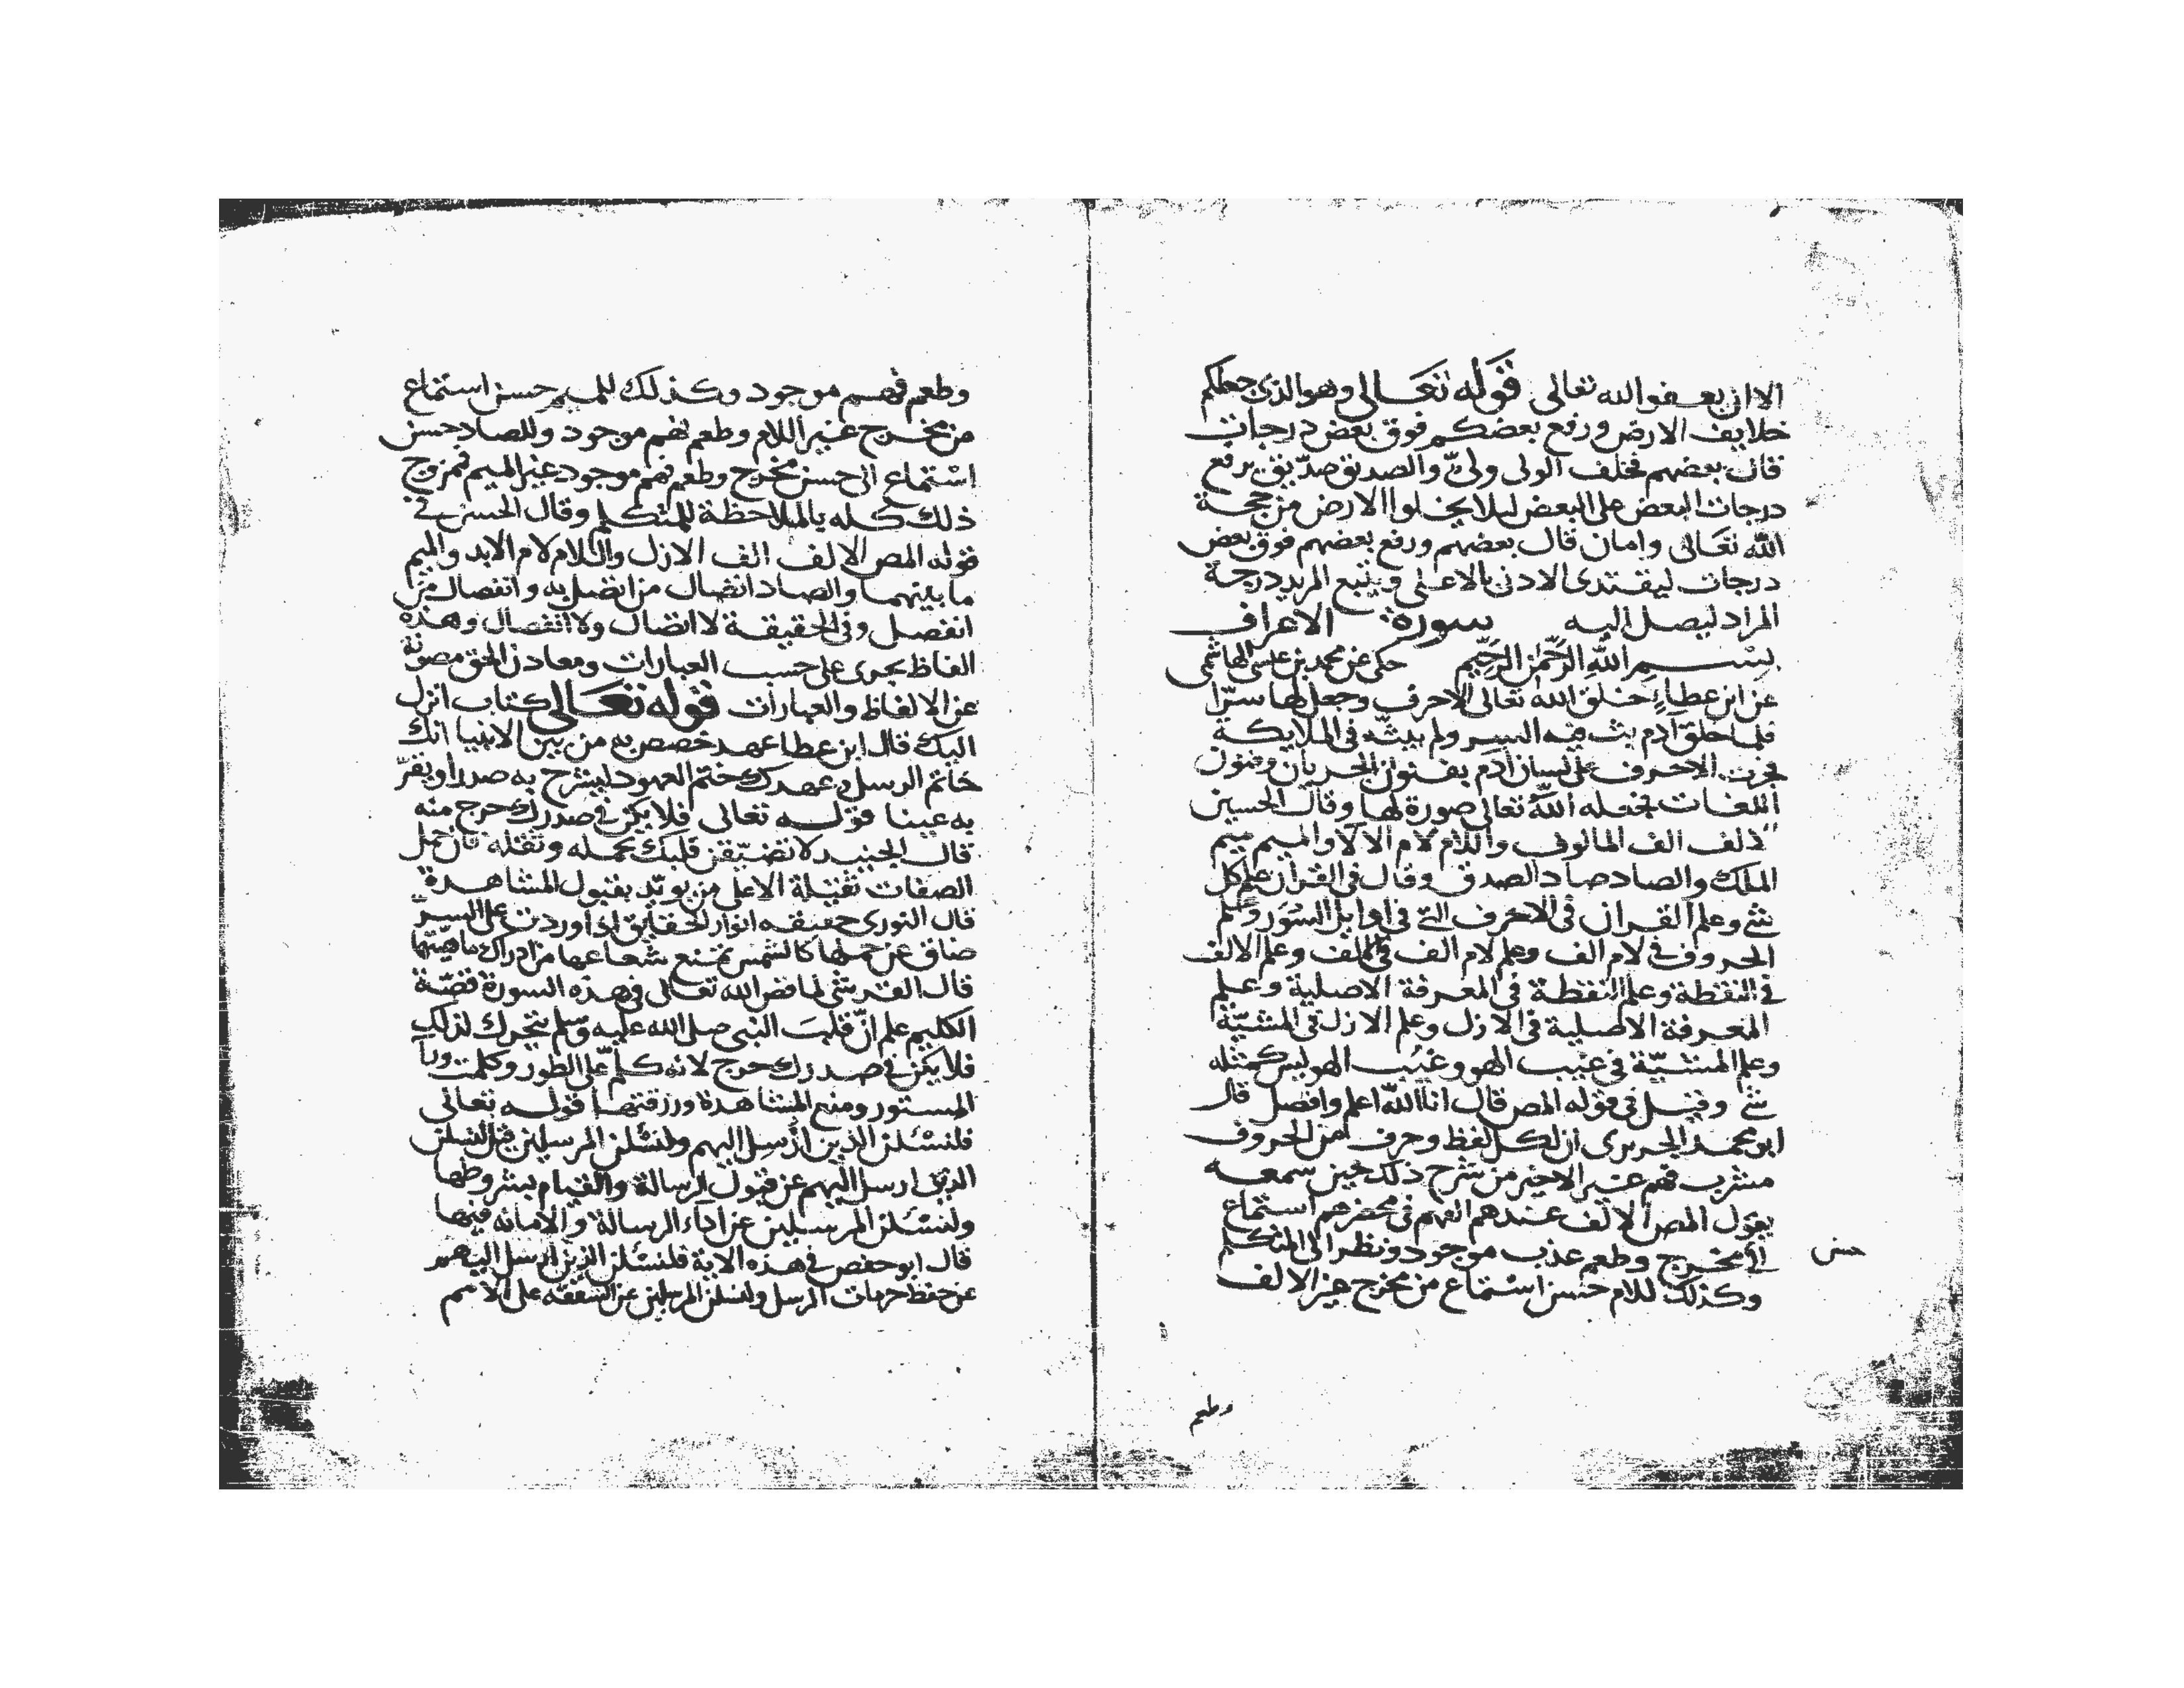 الا ان يعفو الله تعالى قوله تعالى وهو الذى جعلكم
خلايف الارض ورفع بعضكم فوق بعض درجات
قال بعضهم الولى ولى والصديق صديق يرفع
درجات البعض على البعض ليلا يخلوا الارض من حجة
الله تعالى وامان قال بعضهم ورفع بعضهم فوق بعض
درجات ليقتدى الادنى بالاعلى ويتبع المريد درجة
المراد ليصل اليه سورة الاعراف
بسم الله الرحمن الرحيم حكى عن محمد بن عيسى الهاشمى
عن ابن عطاء خلق الله تعالى الاحرف وجعل لها سرا
فلما خلق آدم بث فيه السر ولم يبثه فى الملايكة
فجرت الاحرف على لسان آدم بفنون الجريان وفنون
اللغات فجعله الله تعالى صورة لها وقال الحسين
الف الف المالوف واللام لام الالا والميم ميم
الملك والصاد صاد الصدق وقال فى القرآن علم كل
شئ وعلم القران فى الاحرف التى فى اوايل السور وعلم
الحروف فى لام الف وعلم لام الف فى الالف وعلم الالف
فى النقطة وعلم النقطة فى المعرفة الاصلية وعلم
المعرفة الاصلية فى الازل وعلم الازل فى المشيّة
وعلم المشيّة فى غيب الهو وغيب الهو ليس كمثله
شئ وقيل فى قوله المص قال انا الله اعلم وافصل قال
ابو محمد الجريرى ان لكل لفظ وحرف من الحروف
مشرب فهم غير الاخير من شرح ذلك حين سمعه
يقول المص الالف عندهم الفهم فى محضرهم استماع
الى مخرج وطعم عذب موجود ونظر الى المتكلم
حسن
وكذلك للام حسن استماع من مخرج غير الالف
وطعم
وطعم فهم موجود وكذلك للميم حسن استماع
من مخرج غير اللام وطعم فهم موجود وللصاد حسن
استماع الى حسن مخرج وطعم فهم موجود غير الميم فمزوج
ذلك كله بالملاحظة للمتكلم وقال الحسين فى
قوله المص الالف الف الازل واللام لام الابد والميم
ما بينهما والصاد اتصال من اتصل به وانفصال من
انفصل وفى الحقيقة لا اتصال ولا انفصال وهذه
الفاظ يجرى على حسب العبارات ومعادن الحق مصونة
عن الالفاظ والعبارات قوله تعالى كتاب انزل
اليك قال ابن عطا عهد خصص به من بين الانبيا انك
خاتم الرسل وعهدك ختم العهود لينشرح به صدرا ويقرّ
به عينا قوله تعالى فلا يكن فى صدرك حرج منه
قال الجنيد لا تضيقن قلبك بحمله وثقله فان حمل
الصفات ثقيلة الا على من يويد بقبول المشاهدة
قال النورى حقيقه انوار الحقايق اذا وردت على السر
ضاق عن حملها كالشمس تمنع شعاعها من ادراك ماهيتها
قال القرشى لما قص الله تعالى فى هذه السورة قصّة
الكليم علم انّ قلب النبى صلى الله عليه وسلم يتحرك لذلك
فلا يكن فى صدرك حرج لانه كلم على الطور وكلمت ورآ
المستور ومنع المشاهدة ورزقتها قوله تعالى
فلنسئلن الذين ارسل اليهم ولنسئلن المرسلين قيل لنسئلن
الذين ارسل اليهم عن قبول الرسالة والقيام بشروطها
ولنسئلن المرسلين عن اداء الرسالة والامانة فيها
قال ابو حفص فى هذه الاية فلنسئلن الذين ارسل اليهم
عن حفظ حرمات الرسل ولنسئلن المرسلين عن الشفقه على الامم